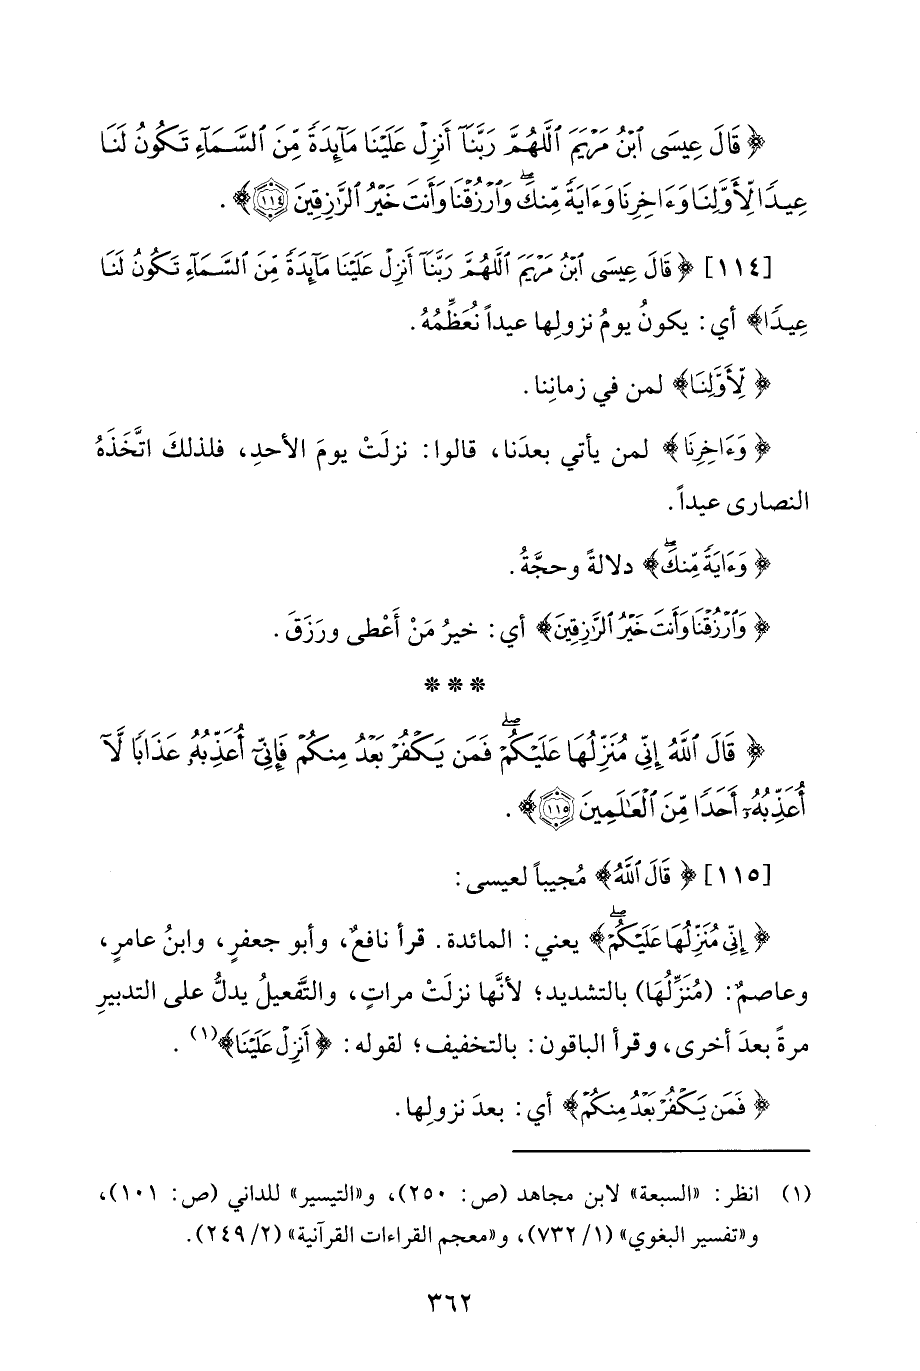 ﴿ قَالَ عِيسَى ٱبْنُ مَرْيَمَ ٱللَّهُمَّ رَبَّنَآ أَنزِلْ عَلَيْنَا مَآئِدَةً مِّنَ ٱلسَّمَآءِ تَكُونُ لَنَا
عِيدًا لِّأَوَّلِنَا وَءَاخِرِنَا وَءَايَةً مِّنكَ ۖ وَٱرْزُقْنَا وَأَنتَ خَيْرُ ٱلرَّٰزِقِينَ ١١٤ ﴾ .
[١١٤] ﴿ قَالَ عِيسَى ٱبْنُ مَرْيَمَ ٱللَّهُمَّ رَبَّنَآ أَنزِلْ عَلَيْنَا مَآئِدَةً مِّنَ ٱلسَّمَآءِ تَكُونُ لَنَا
عِيدًا﴾ أي: يكونُ يومُ نزولِها عيداً نُعَظِّمُهُ.
﴿ لِّأَوَّلِنَا﴾ لمن في زمانِنا.
﴿ وَءَاخِرِنَا﴾ لمن يأتي بعدَنا، قالوا: نزلَتْ يومَ الأحدِ، فلذلكَ اتَّخَذَهُ
النصارى عيداً.
﴿ وَءَايَةً مِّنكَ ۖ﴾ دلالةً وحجَّةُ.
﴿ وَٱرْزُقْنَا وَأَنتَ خَيْرُ ٱلرَّٰزِقِينَ﴾ أي: خيرُ مَنْ أَعْطى ورَزَقَ.
* * *
﴿ قَالَ ٱللَّهُ إِنِّي مُنَزِّلُهَا عَلَيْكُمْ ۖ فَمَن يَكْفُرْ بَعْدُ مِنكُمْ فَإِنِّيٓ أُعَذِّبُهُۥ عَذَابًا لَّآ
أُعَذِّبُهُۥٓ أَحَدًا مِّنَ ٱلْعَٰلَمِينَ ١١٥ ﴾ .
[١١٥] ﴿ قَالَ ٱللَّهُ﴾ مُجيباً لعيسى:
﴿ إِنِّي مُنَزِّلُهَا عَلَيْكُمْ ۖ﴾ يعني: المائدة. قرأ نافعٌ، وأبو جعفرٍ، وابنُ عامرٍ،
وعاصمٌ: (مُنَزِّلُهَا) بالتشديد؛ لأنَّها نزلَتْ مراتٍ، والتَّفعيلُ يدلُّ على التدبيرِ
مرةً بعدَ أخرى، وقرأ الباقون: بالتخفيف؛ لقوله: ﴿ أَنزِلْ عَلَيْنَا﴾(١) .
﴿ فَمَن يَكْفُرْ بَعْدُ مِنكُمْ﴾ أي: بعدَ نزولِها.
(١) انظر: «السبعة» لابن مجاهد (ص: ٢٥٠)، و«التيسير» للداني (ص: ١٠١)،
و«تفسير البغوي» (١/ ٧٣٢)، و«معجم القراءات القرآنية» (٢/ ٢٤٩).
٣٦٢